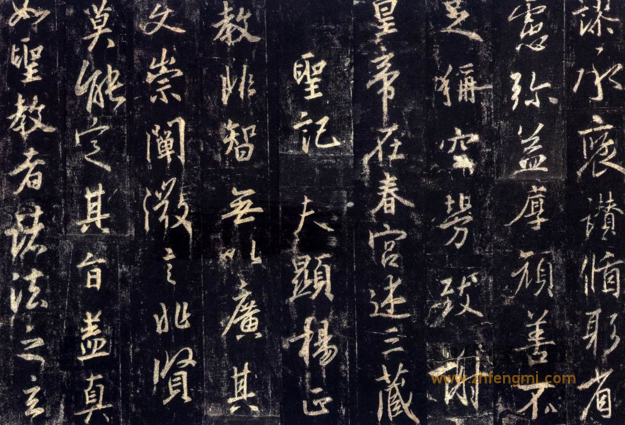 謬承褒讚循躬省
慮弥益厚顏善不
足稱空勞致謝
皇帝在春宮述三藏
聖記 夫顯揚正
教非智無以廣其
文崇闡微言非賢
莫能定其旨蓋真
如聖教者諸法之玄
www.zhfengmi.com